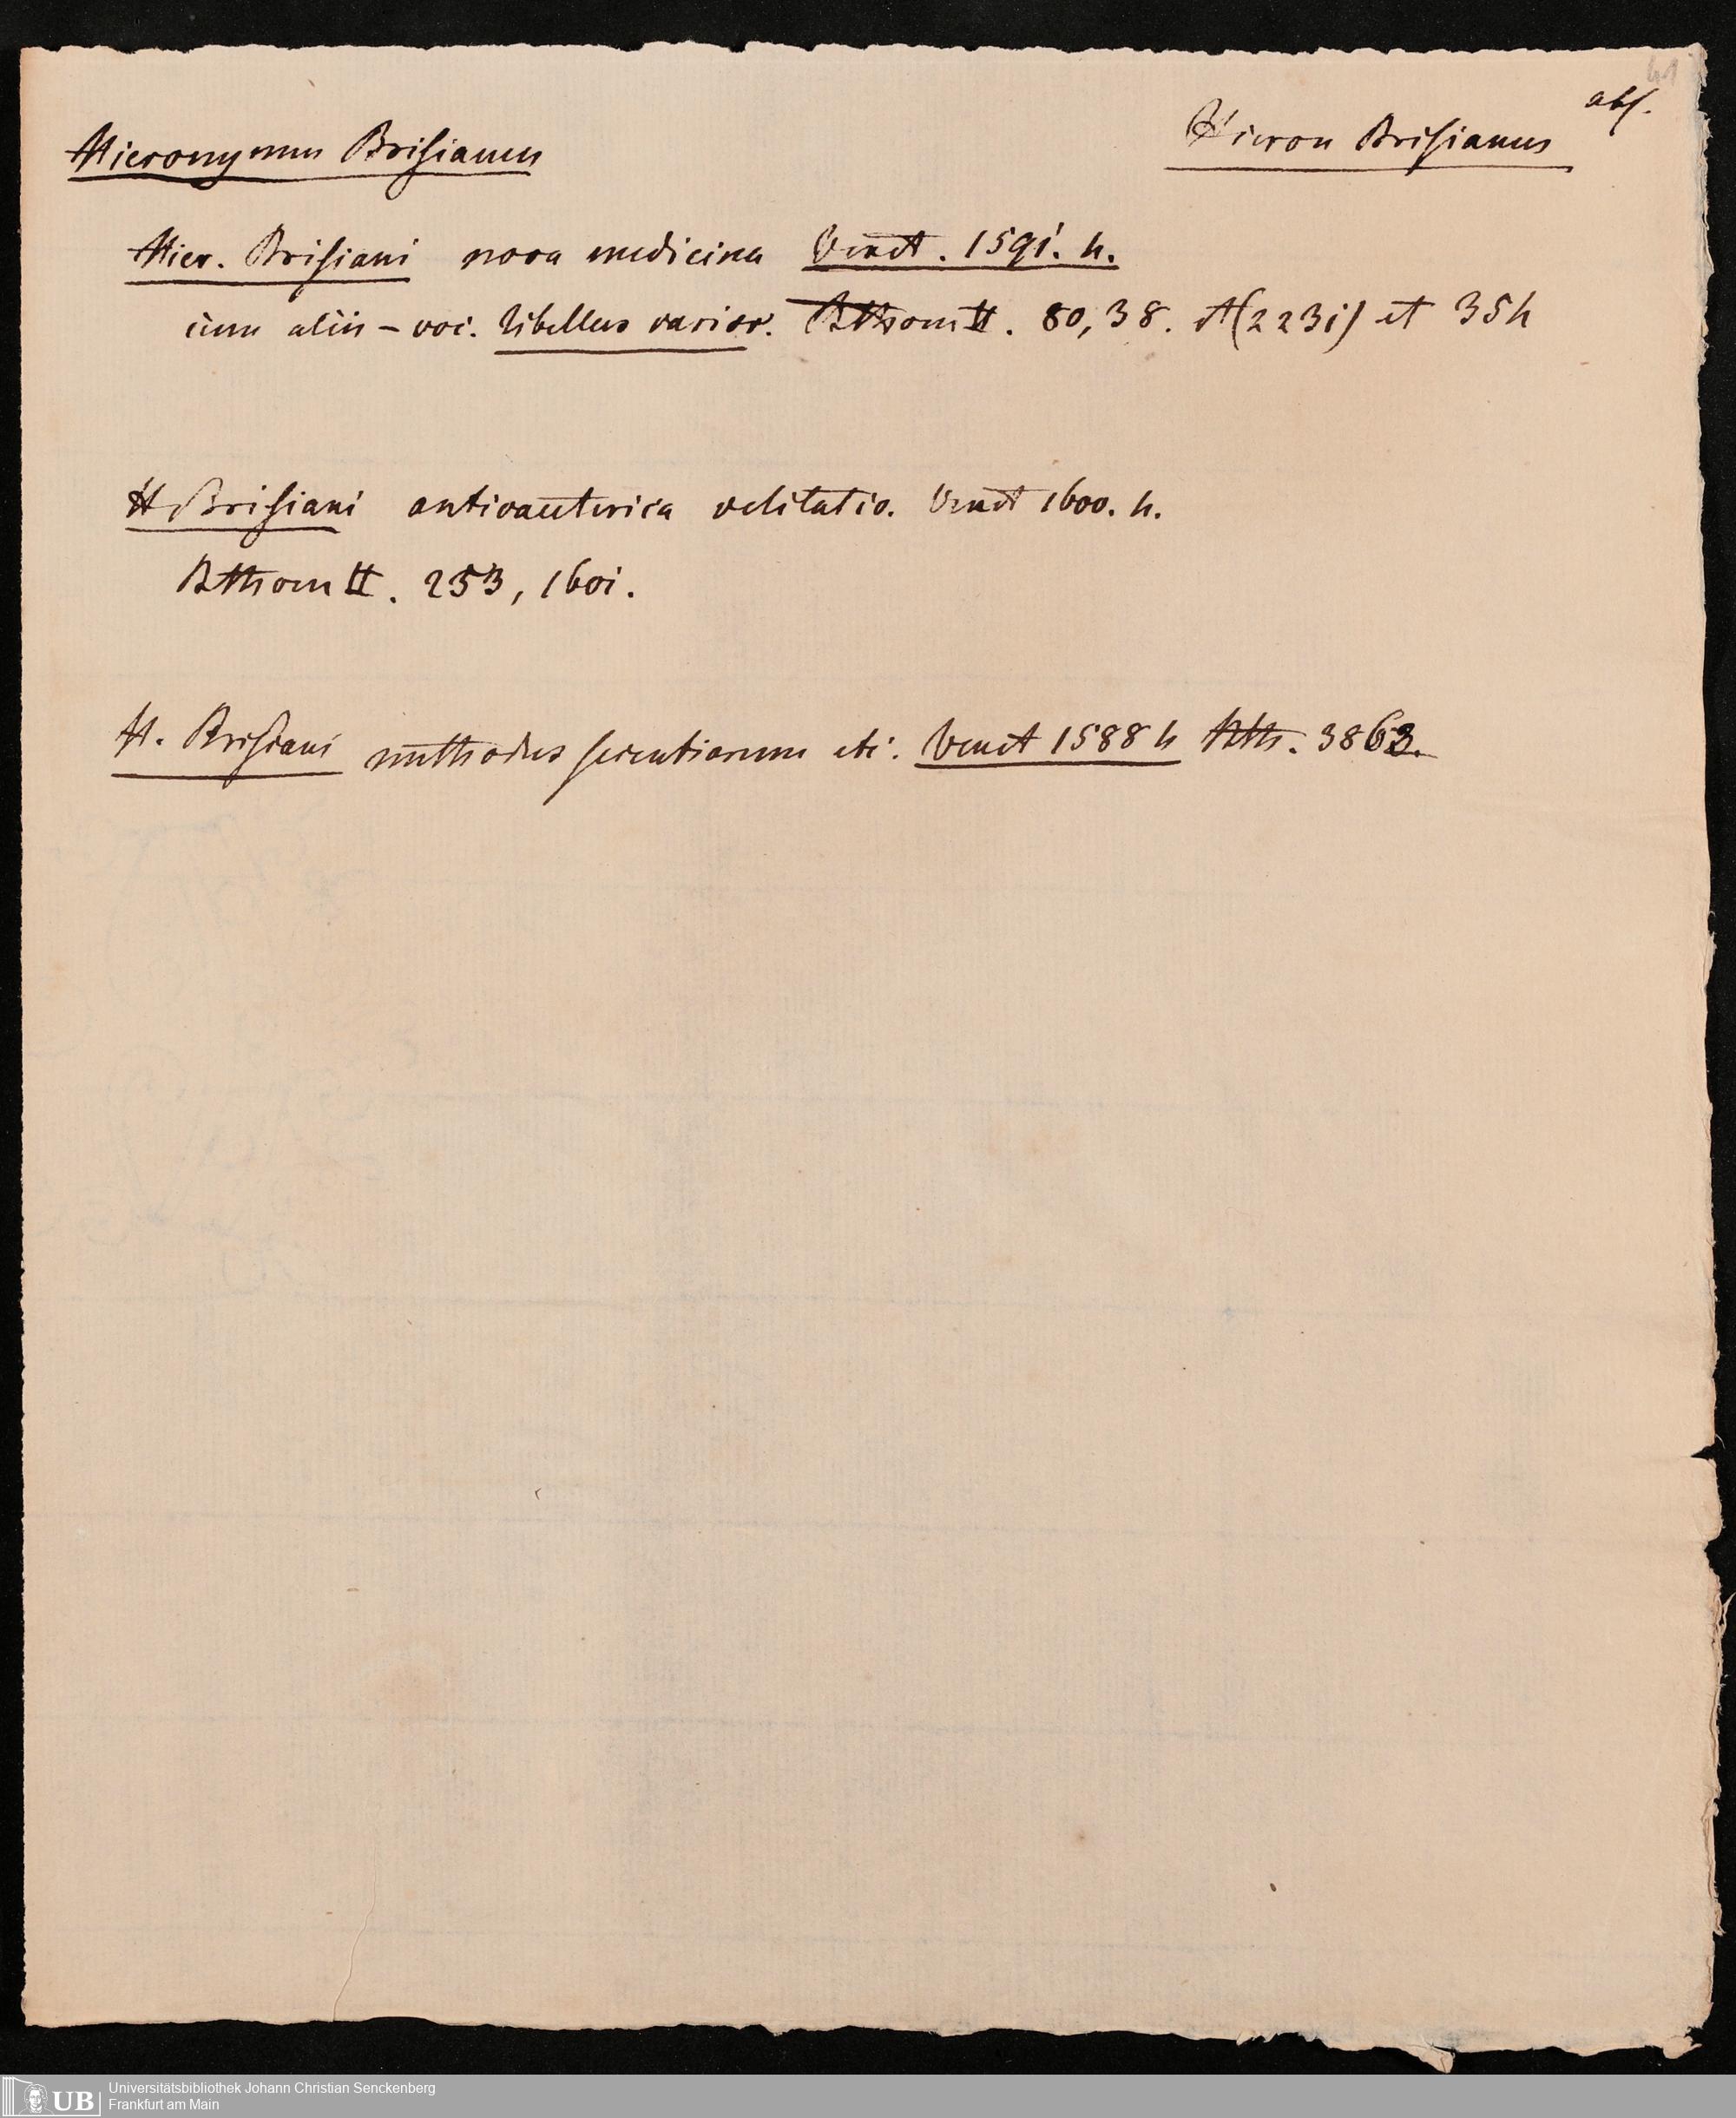 41
abs.
Hieronymus Brisianus
Hieron Brisianus
Hier. Brisiani nova medicina Venet. 1591. 4.
cum aliis – voc. libellus varior. BThom II. 80, 38. et (2231) et 354
H Brisiani anticauterica velitatio. Venet 1600. 4.
BThom II. 253, 1601.
H. Brisiani methodus scientiarum etc. Venet 1588 4 Bth. 3863.
UB
Universitätsbibliothek Johann Christian Senckenberg
Frankfurt am Main